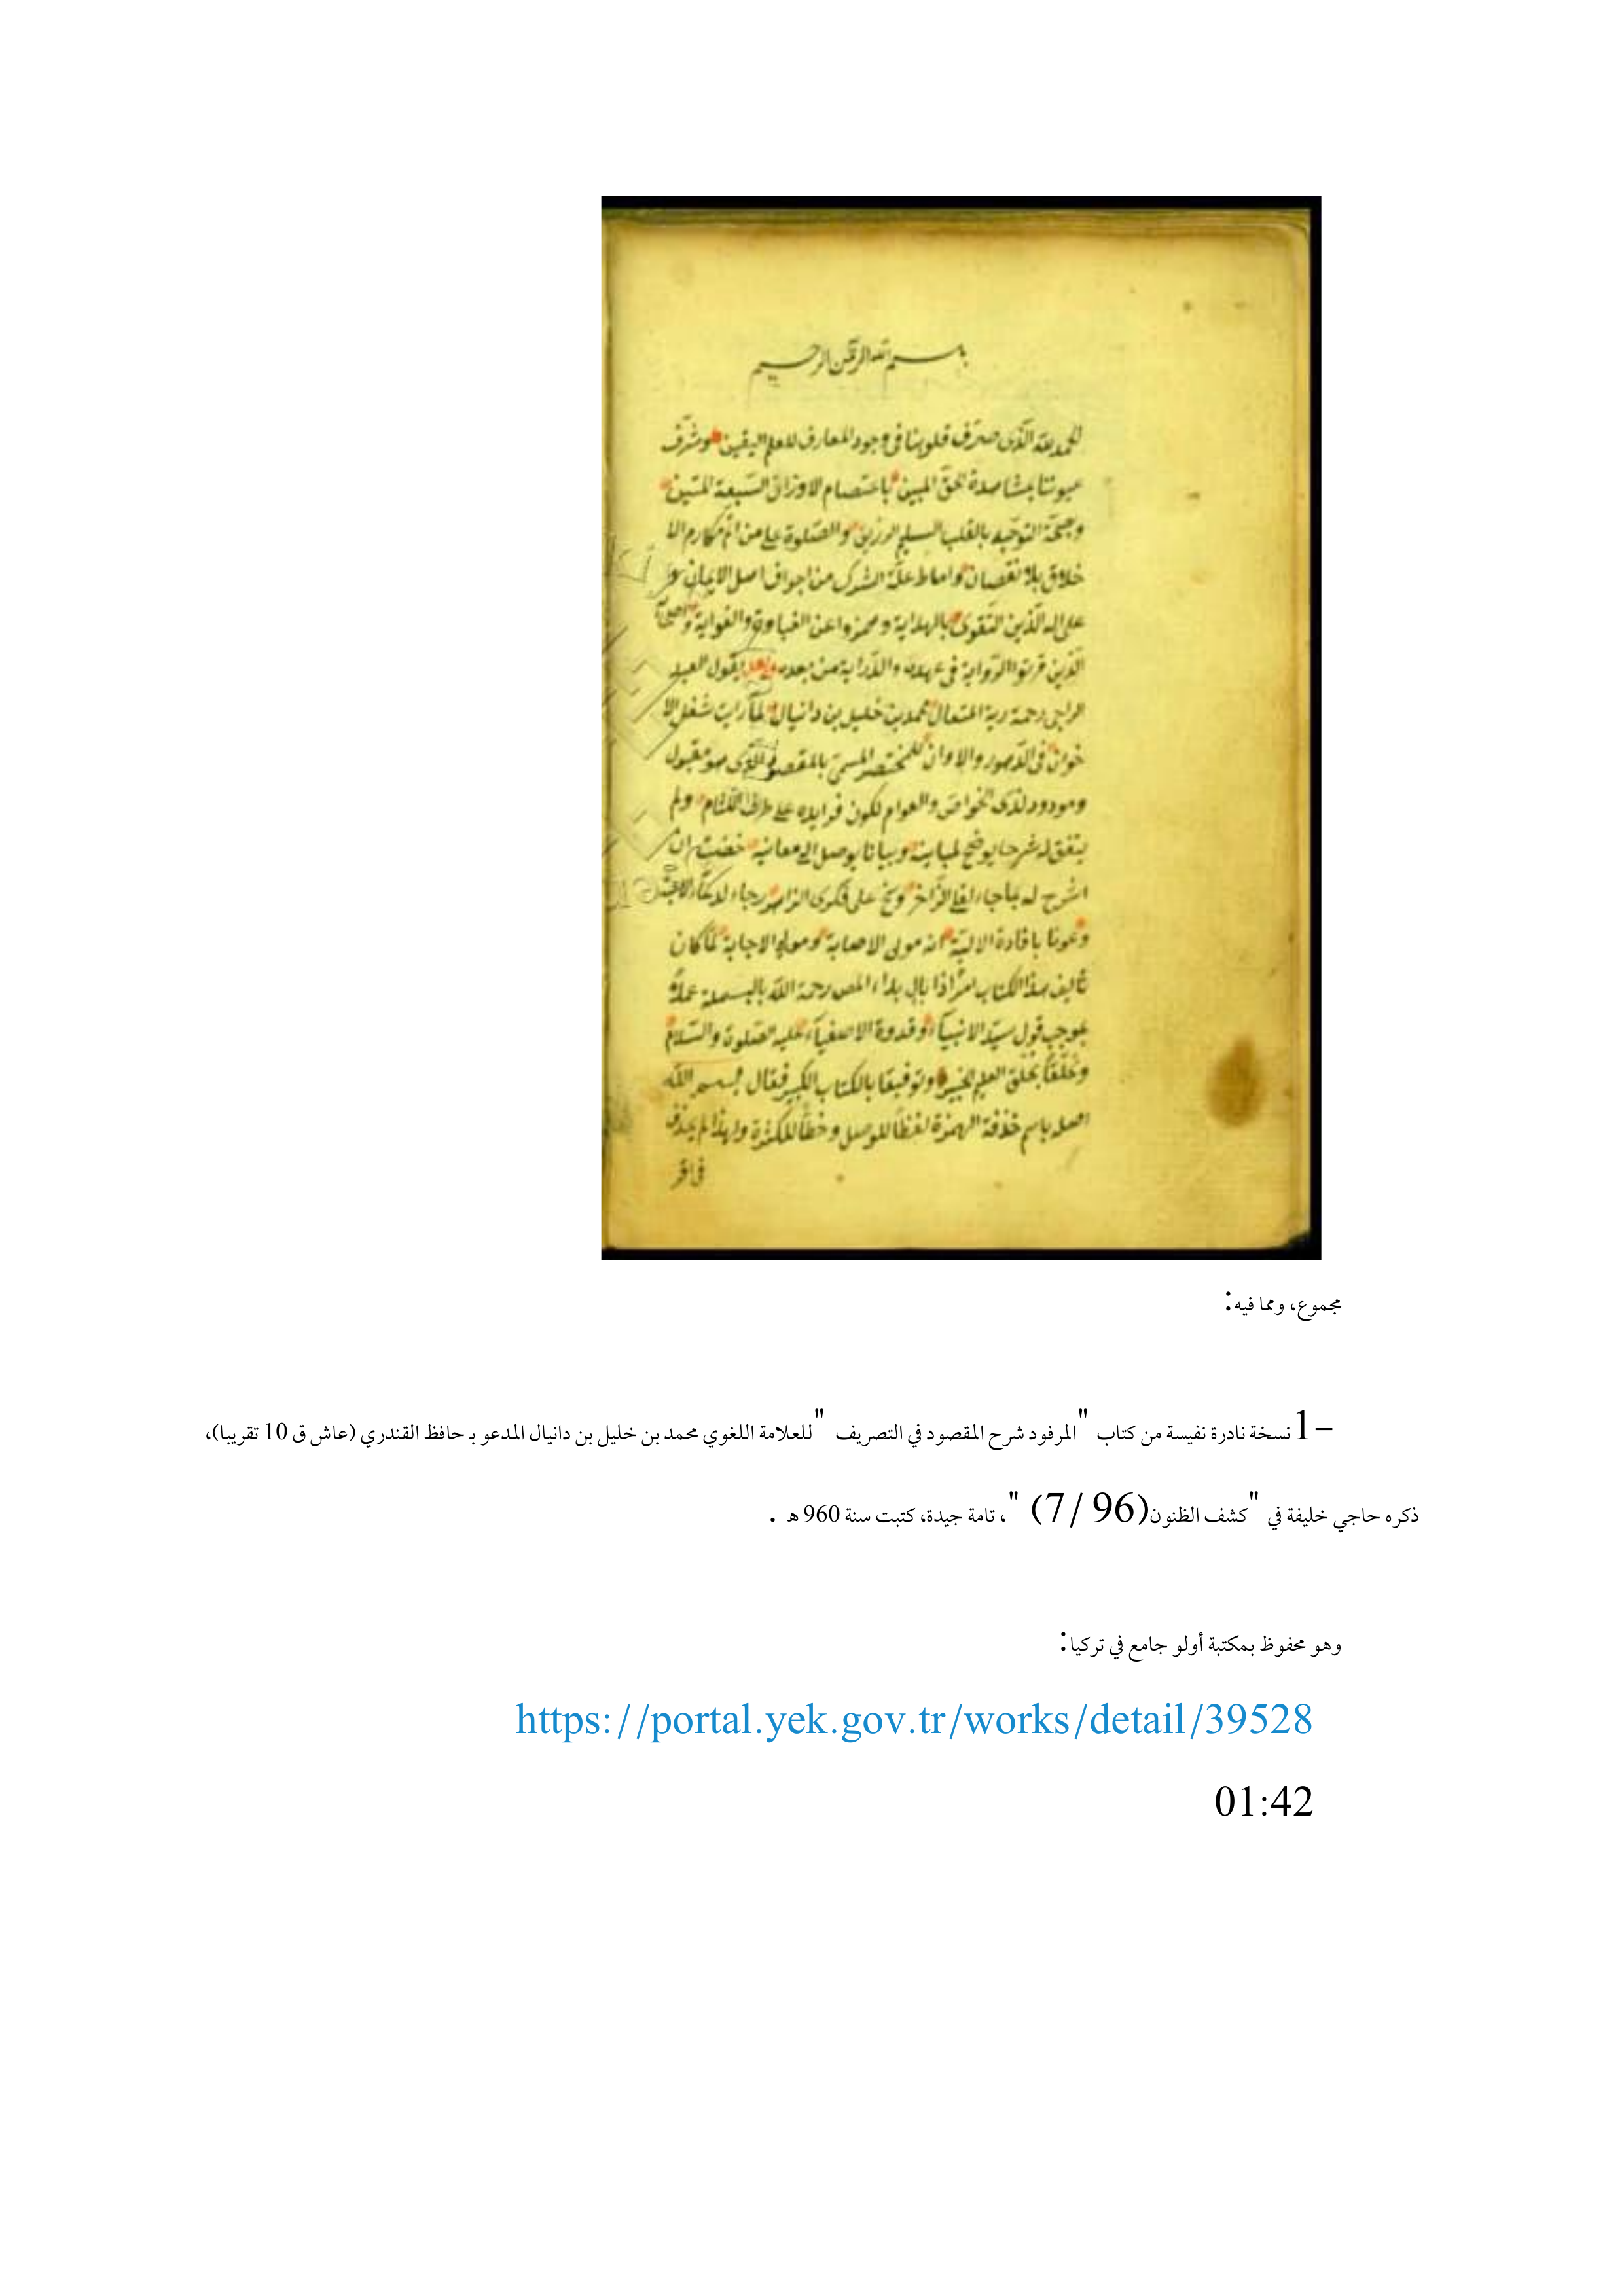 بسم الله الرحمن الرحيم
الحمد لله الذى صرف قلوبنا فى وجود المعارف للعلم اليقين وشرف
عيوننا بمشاهدة الحق المبين باعتصام الاوزان السبعة المتين
وصحة التوحيد بالقلب السليم الرزين والصلوة على من اتم مكارم الا
خلاق بلا نقصان واماط علة الشرك من اجواف اصل الايمان
على اله الذين التقوى بالهداية وهمزوا عن الغباوة والغواية
الذين قرنوا الرواية فى عهده والدراية من بعده وبعد يقول العبد
الراجى رحمة ربه المتعال محمد بن خليل بن دانيال لما رايت شغل الا
خوان فى الدهور والاوان للمختصر المسمى بالمقصود الذى هو مقبول
ومودود لدى الخواص والعوام لكون فوايده على طرف الثمام ولم
يتفق له شرحا يوضح لمبانيه وبيانا يوصل الى معانيه ان
اشرح له ما جاء الزاخر على فكرى رجاء
وعونا بافادة انه مولى الاصابة ومولى الاجابة لما كان
تاليف هذا الكتاب امرا ذا بال بداء المص رحمة الله بالبسملة عملا
بموجب قول سيد الانبياء وقدوة الاصفياء عليه الصلوة والسلام
وتخلقا بخلق العليم الخبير وتوفيقا بالكتاب الكبير فقال بسم الله
اصله باسم حذفة الهمزة لفظا للوصل وخطا للكثرة ولهذا لم يحذف
فى اقر
مجموع، ومما فيه:
1– نسخة نادرة نفيسة من كتاب "المرفود شرح المقصود في التصريف" للعلامة اللغوي محمد بن خليل بن دانيال المدعو بـ حافظ القندري (عاش ق 10 تقريبا)،
ذكره حاجي خليفة في "كشف الظنون (7/ 96) "، تامة جيدة، كتبت سنة 960 هـ .
وهو محفوظ بمكتبة أولو جامع في تركيا:
https://portal.yek.gov.tr/works/detail/39528
01:42